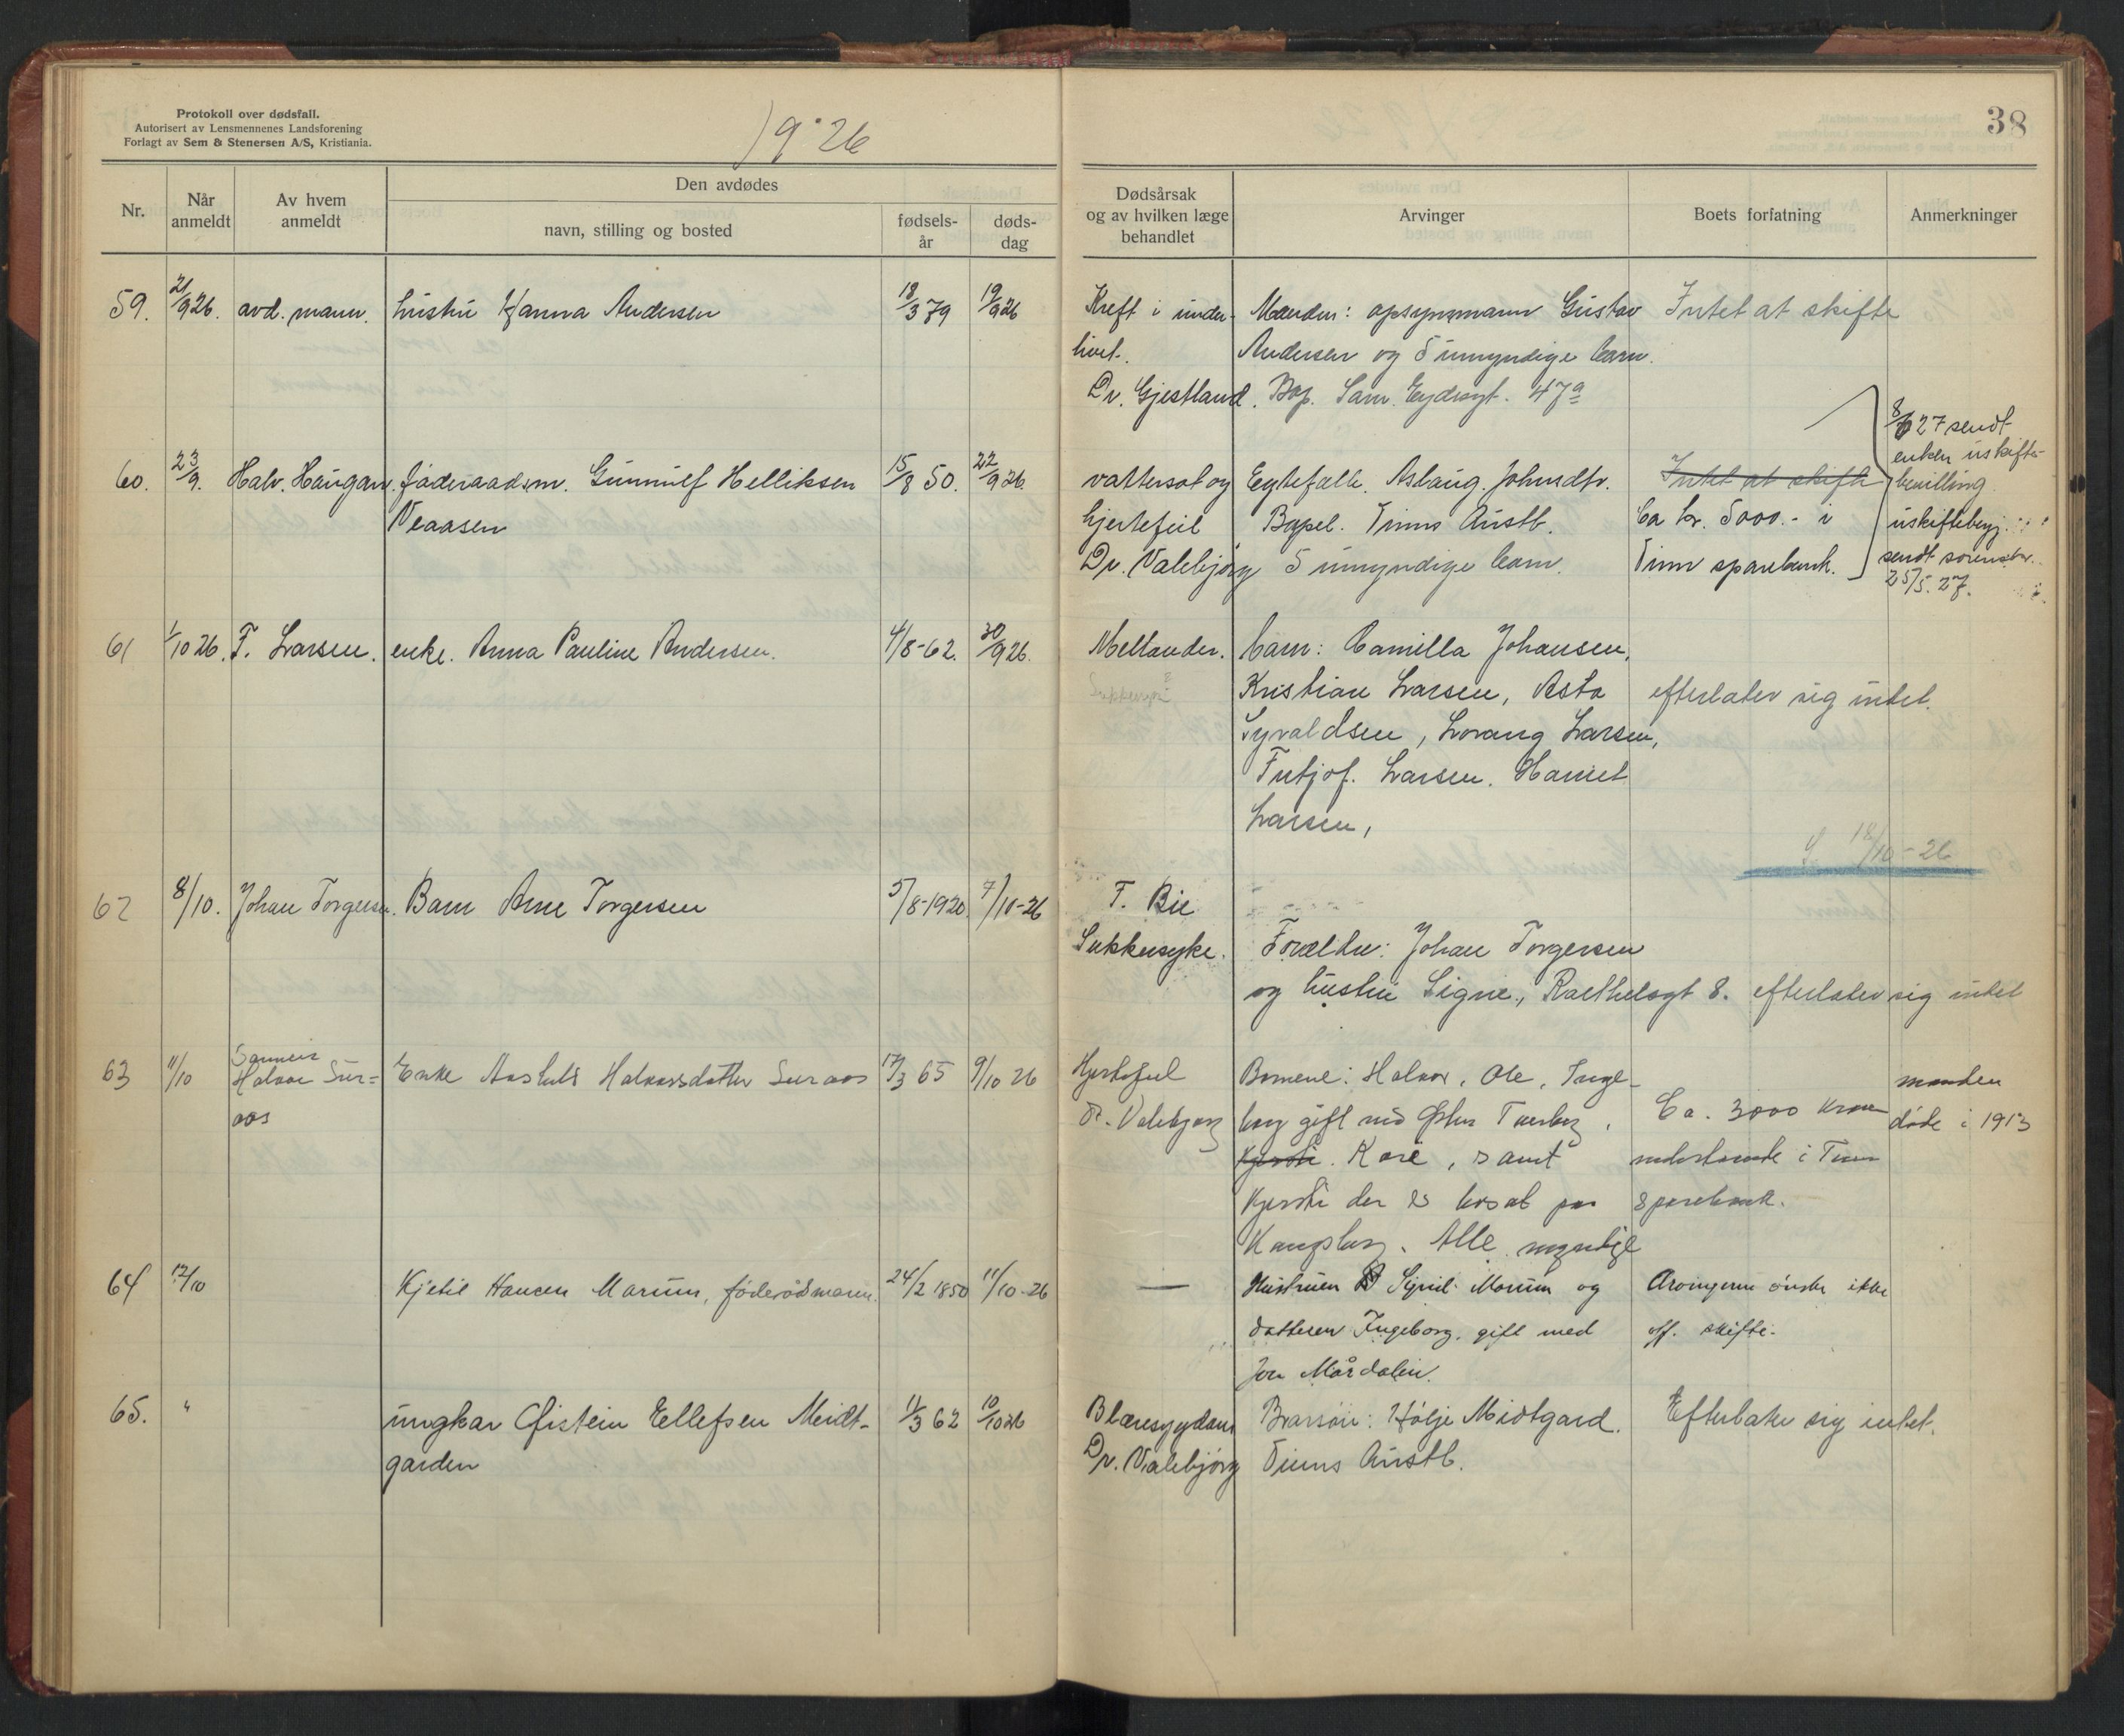 Protokoll over dødsfall.
Autorisert av Lensmennenes Landsforening
Forlagt av Sem & Stenersen A/S, Kristiania.
1926
38
Nr.
Når anmeldt
Av hvem anmeldt
Den avdødes
navn, stilling og bosted
fødsels-år
døds-dag
Dødsårsak
og av hvilken læge
behandlet
Arvinger
Boets forfatning
Anmerkninger
59. 21/9 26. avd. mann. hustru Hanna Andersen 18/3 79 19/9 26
Kreft i under-
livet.
Dr. Gjestland.
Manden: opsynsmann Gustav
Andersen og 5 umyndige barn.
Bop. Sam. Eydesgt. 47a
Intet at skifte
60. 23/9. Halv. Haugan. føderaadsm. Gunnulf Helliksen
Veaasen
15/8 50. 22/9 26.
vattersot og
hjertefeil
Dr. Valebjørg
Egtefælle. Aslaug. Johnsdtr.
Bopel. Tinns Austb.
5 umyndige barn.
Intet at skifte
Ca kr. 5000.- i
Tinn sparebank.
8/6 27 sendt
enken uskifte-
bevilling
uskiftebegj.
sendt sorenskr.
25/5. 27.
61 1/10 26. F. Larsen. enke. Anna Pauline Andersen. 4/8-62. 30/9 26.
Mellander.
barn: Camilla Johansen,
Kristian Larsen, Asta
Syvaldsen, Lorang Larsen,
Fritjof. Larsen. Harriet
Larsen,
efterlater sig intet.
18/10-26
62 8/10. Johan Torgersen. Barn Arne Torgersen 5/8-1920 7/10-26
T. Bie
Sukkersyke.
Forældre: Johan Torgersen
og hustru Signe, Raethelsgt 8.
efterlater sig intet
63 11/10 Sønnen
Halvor Sur=
aas
Enke Aashild Halvorsdatter Suraas 17/3 65 9/10 26
Hjertefeil
Dr. Valebjørg
Barnene: Halvor, Ole, Inge-
borg gift med
Kjersti. Kari, samt
Kjersti der er bosat paa
Kongsberg. Alle myndige
Ca. 3000 kroner
indestaaende i Tinn
sparebank.
manden
døde i 1913
64 12/10 Kjetil Hansen Marum, føderådsmann. 24/2 1850 11/10-26
—
Hustruen Signe Marum og
datteren Ingeborg. gift med
Jon Mårdalen.
Arvingerne ønsker ikke
off. skifte.
65. " ungkar Øistein Ellefsen Meidt-
garden
11/3 62 10/10 26
Blæresygdom
Dr. Valebjørg
Brorsøn: Hølje Midtgard.
Tinns Austb.
Efterlater sig intet.